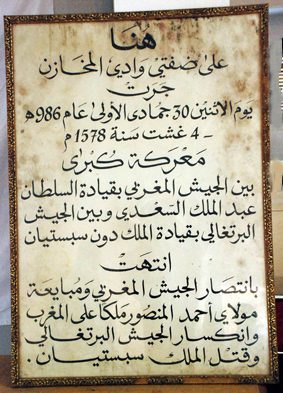 هُنا
على ضفتي وادي المخازن
جَرت
يوم الاثنين 30 جمادى الأولى عام 986هـ
- 4 غشت سنة 1578م
معركة كبرى
بين الجيش المغربي بقيادة السلطان
عبد الملك السعدي وبين الجيش
البرتغالي بقيادة الملك دون سبستيان
انتهت
بانتصار الجيش المغربي ومبايعة
مولاي أحمد المنصور ملكا على المغرب
وانكسار الجيش البرتغالي
وقتل الملك سبستيان .